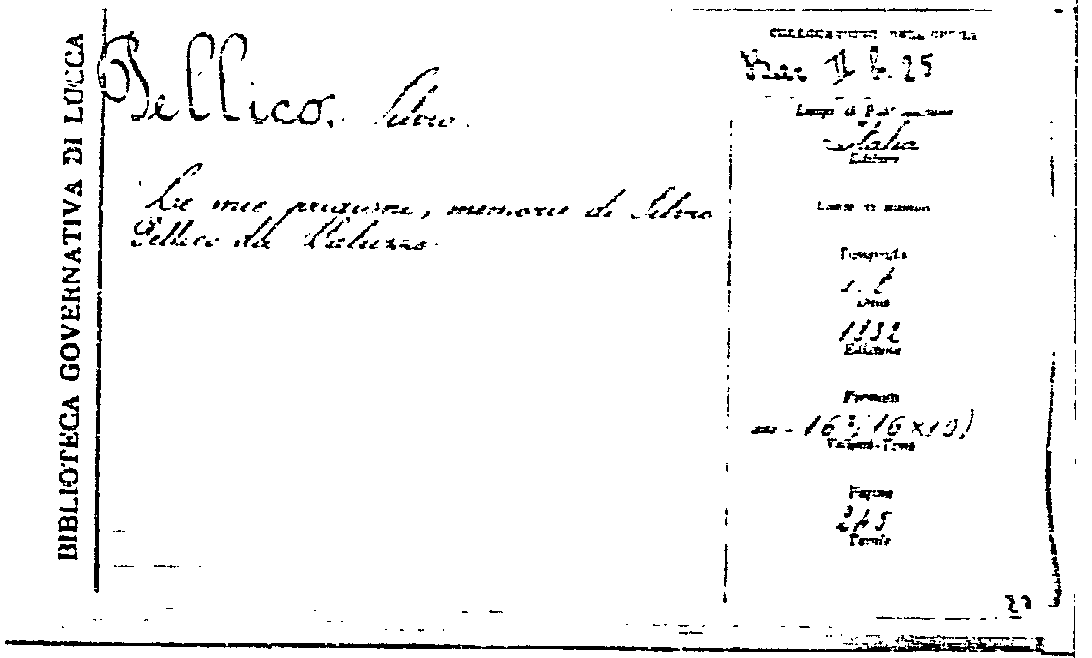 BIBLIOTECA GOVERNATIVA DI LUCCA
Pellico, Silvio.
Le mie prigioni, memorie di Silvio
Pellico da Saluzzo.
COLLOCAZIONE DELL'OPERA
II b. 25
Luogo di Pubblicazione
Italia
Editore
Luogo di stampa
Tipografia
Data
1832
Edizione
Formato
in-16° (16×10)
Volumi-Tomi
Pagine
Tavole